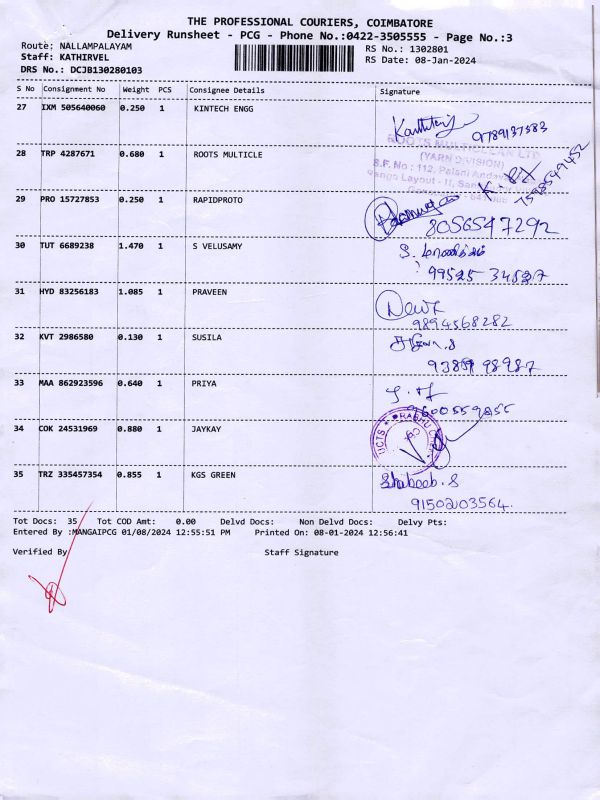 THE PROFESSIONAL COURIERS, COIMBATORE
Delivery Runsheet - PCG - Phone No.:0422-3505555 - Page No.:3
Route: NALLAMPALAYAM RS No.: 1302801
Staff: KATHIRVEL RS Date: 08-Jan-2024
DRS No.: DCJB130280103
S No Consignment No Weight PCS Consignee Details Signature
27 IXM 505640060 0.250 1 KINTECH ENGG
9789137583
28 TRP 4287671 0.680 1 ROOTS MULTICLE
ROOTS MULTICLEAN LTD
(YARN DIVISION)
S.F. No : 112, Palani Andava
Layout - II,
7598549452
29 PRO 15727853 0.250 1 RAPIDPROTO
8056547292
30 TUT 6689238 1.470 1 S VELUSAMY
99525 34527
31 HYD 83256183 1.085 1 PRAVEEN
9894568282
32 KVT 2986580 0.130 1 SUSILA
33 MAA 862923596 0.640 1 PRIYA
34 COK 24531969 0.880 1 JAYKAY
35 TRZ 335457354 0.855 1 KGS GREEN
Shabeeb. S
9150203564.
Tot Docs: 35 Tot COD Amt: 0.00 Delvd Docs: Non Delvd Docs: Delvy Pts:
Entered By :MANGAIPCG 01/08/2024 12:55:51 PM Printed On: 08-01-2024 12:56:41
Verified By Staff Signature